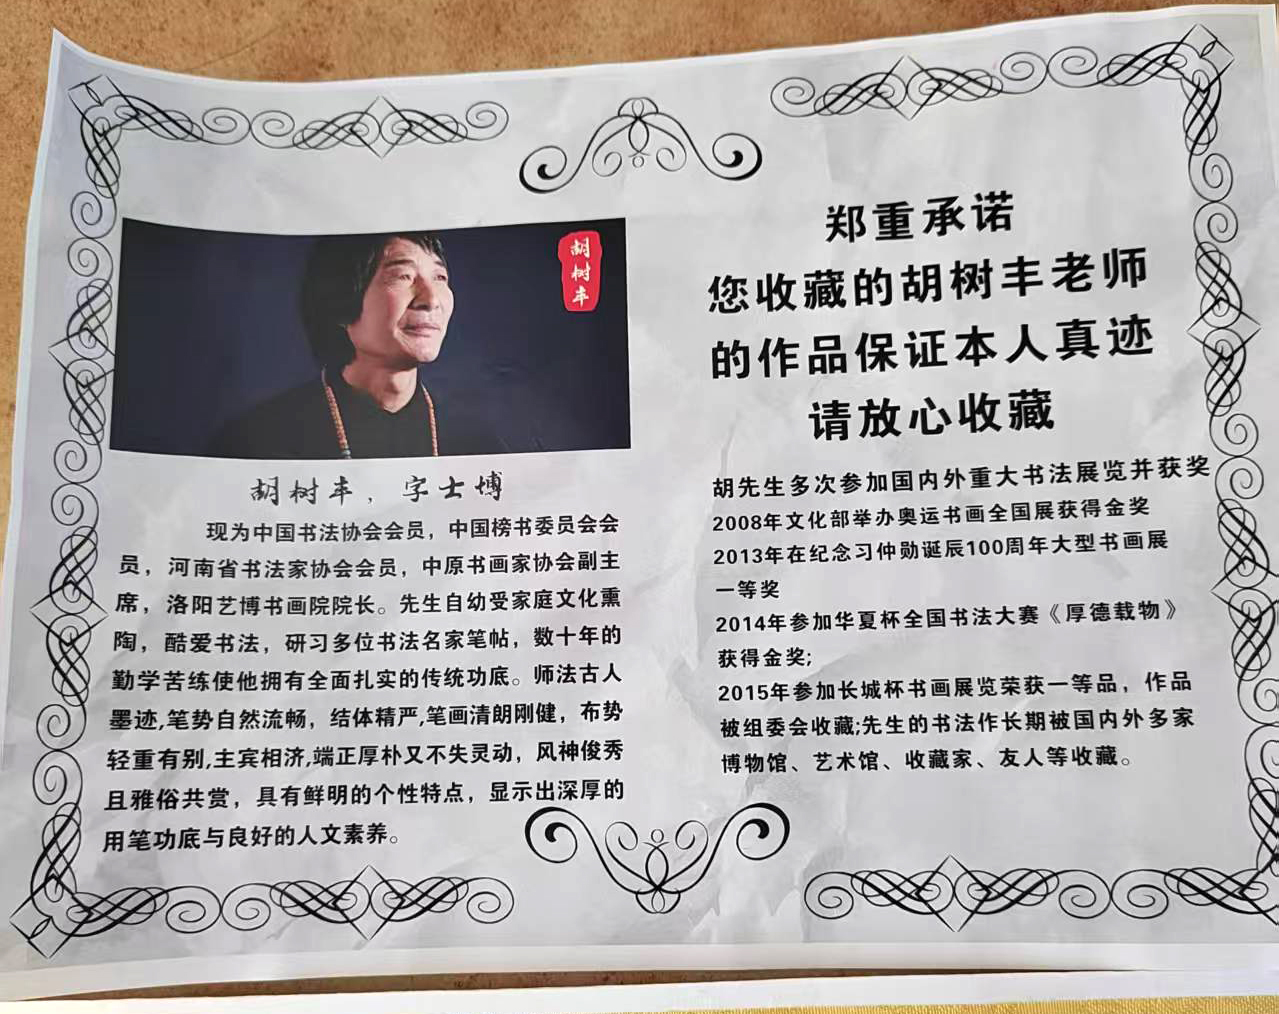 胡树丰
胡树丰，字士博
现为中国书法协会会员，中国榜书委员会会
员，河南省书法家协会会员，中原书画家协会副主
席，洛阳艺博书画院院长。先生自幼受家庭文化熏
陶，酷爱书法，研习多位书法名家笔帖，数十年的
勤学苦练使他拥有全面扎实的传统功底。师法古人
墨迹,笔势自然流畅，结体精严,笔画清朗刚健，布势
轻重有别,主宾相济,端正厚朴又不失灵动，风神俊秀
且雅俗共赏，具有鲜明的个性特点，显示出深厚的
用笔功底与良好的人文素养。
郑重承诺
您收藏的胡树丰老师
的作品保证本人真迹
请放心收藏
胡先生多次参加国内外重大书法展览并获奖
2008年文化部举办奥运书画全国展获得金奖
2013年在纪念习仲勋诞辰100周年大型书画展
一等奖
2014年参加华夏杯全国书法大赛《厚德载物》
获得金奖;
2015年参加长城杯书画展览荣获一等品，作品
被组委会收藏;先生的书法作长期被国内外多家
博物馆、艺术馆、收藏家、友人等收藏。